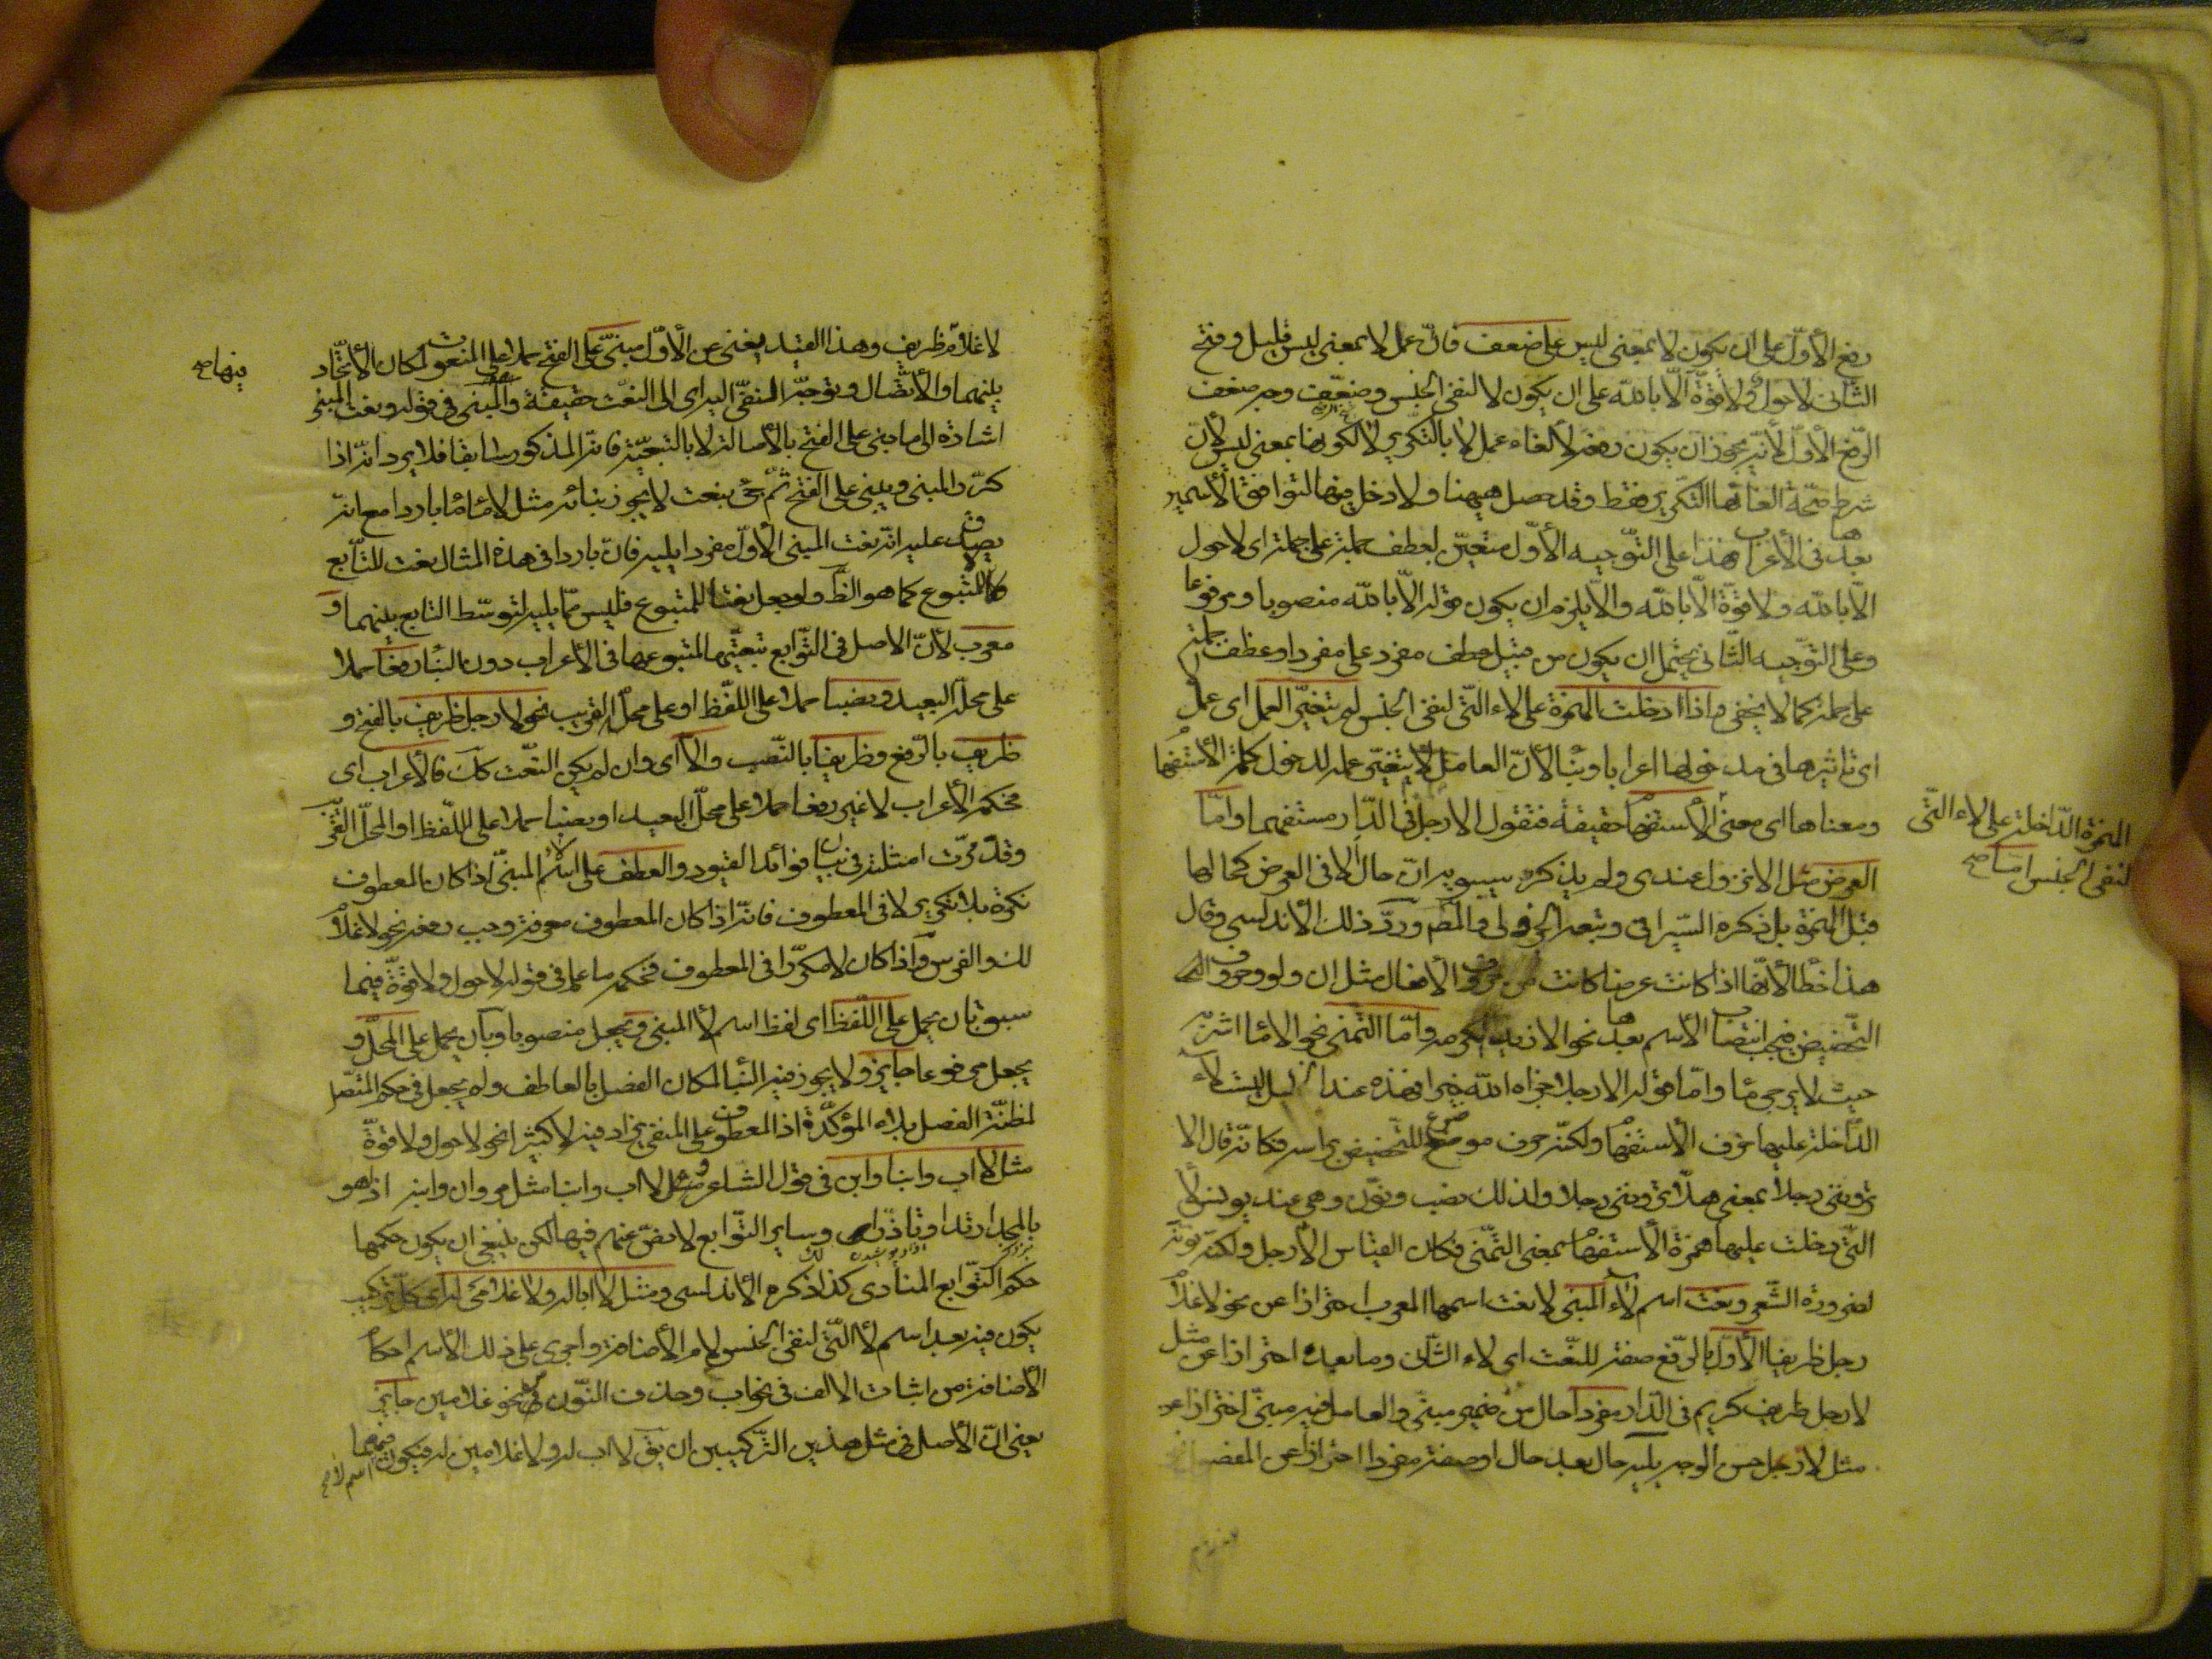 رفع الأوّل على ان يكون لا بمعنى ليس على ضعف فانّ عمل لا بمعنى ليس قليل وفتح
الثانى لا حول ولا قوّة الّا بالله على ان يكون لا لنفى الجنس وضعّف وجه ضعف
الرّفع الأوّل لأنّه يجوز ان يكون رفعه لألغاء عمل لا بالتكرير لا لكونها بمعنى ليس لأنّ
شرط صحّة الغائها التكرير فقط وقد حصل ههنا ولا دخل فيها لتوافق الأسمين
بعدها فى الأعراب هذا على التوّجيه الأوّل متعيّن لعطف جملة على جملة اى لا حول
الّا بالله ولا قوّة الّا بالله والّا يلزم ان يكون قوله الّا بالله منصوبا ومرفوعا
وعلى التوّجيه الثّانى يحتمل ان يكون من قبيل عطف مفرد على مفرد او عطف جملة
على جملة كما لا يخفى واذا ادخلت الهمزة على لاء التّى لنفى الجنس لم يتغيّر العمل اى عمل
اى تاثيرها فى مدخولها اعرابا وبناء لأنّ العامل لا يتغيّر عمله لدخول كلمة الأستفها
ومعناها اى معنى الأستفها حقيقة فتقول الا رجل فى الدّار مستفهما وامّا
الهمزة الدّاخلة على لاء التّى
لنفى الجنس امّا صح
العرض مثل الا نزول عندى ولم يذكره سيبويه انّ حال الا فى العرض كحالها
قبل الهمزة بل ذكره السّيرافى وتبعه الجزولى والمص وردّ ذلك الأندلسى وقال
هذا خطأ لأنّها اذا كانت عرضا كانت من حروف الأفعال مثل ان ولو وحروف
التّحضيض فيجب انتصاب الأسم بعدها نحو الا زيدا تكرمه وامّا التمنى نحو الا ماء اشربه
حيث لا يرجى ماء وامّا قوله الا رجلا جزاه الله خيرا فهذه عند الخليل ليست لاء
الدّاخلة عليها حرف الأستفها ولكنّه حرف موضوع للتّحضيض براسه فكانّه قال الا
تروننى رجلا بمعنى هلّا تروننى رجلا ولذلك نصب ونوّن وهى عند يونس لأ
التّى دخلت عليها همزة الأستفها بمعنى التّمنى فكان القياس الا رجل ولكنّه نوّنه
لضرورة الشّعر ونعت اسم لاء المبنى لا نعت اسمها المعرب احترازا عن نحو لا غلا
رجل ظريفا الأوّل بالرّفع صفة للنّعت اى لاء الثّانى وما بعده احترازا عن مثل
لا رجل ظريف كريم فى الدّار مفردا حال من ضمير مبنّى والعامل فيه مبنّى احترازا عن
مثل لا رجل حسن الوجه يليه حال بعد حال او صفة مفردا احترازا عن المفصول
لا غلام ظريف وهذا القيد يغنى عن الأوّل مبنّى على الفتح حملا على المنعوت لمكان الأتّحاد
فيها صح
بينهما والأتّصال وتوجّه النفى اليه اى الى النعّت حقيقة والمبنى فى قوله ونعت المبنى
اشارة الى ما بنى على الفتح بالأصالة لا بالتبعيّة فانّه المذكور سابقا فلا يرد انّه اذا
كرّر المبنى وبنى على الفتح ثمّ جئ بنعت لا يجوز بنائه مثل لا ماء ماء باردا مع انّه
يصدق عليه انّه نعت المبنى الأوّل مفردا يليه فانّ باردا فى هذه المثال نعت للتّابع
لا للمتبوع كما هو الظ ولو جعل نعتا للمتبوع فليس ممّا يليه لتوسّط التابع بينهما و
معرب لأنّ الاصل فى التّوابع تبعيّتها لمتبوعها فى الأعراب دون البناء رفعا حملا
على محلّه البعيد ونصبا حملا على اللّفظ او على محلّه القريب نحو لا رجل ظريف بالفتح و
ظريف بالرّفع وظريفا بالنّصب والّا اى وان لم يكن النعّت كذلك فالأعراب اى
فحكمه الأعراب لا غير رفعا حملا على محلّ البعيد او نصبا حملا على اللّفظ او المحلّ القريب
وقد مرّت امثلته فى بيان فوائد القيود والعطف على اسم لا المبنّى اذا كان المعطوف
نكرة بلا تكرير لا فى المعطوف فانّه اذا كان المعطوف معرفة وجب رفعه نحو لا غلام
لك والفرس واذا كان لا مكرّرا فى المعطوف فحكمه ما علم فى قوله لا حول ولا قوّة فيما
سبق بان يحمل على اللّفظ اى لفظ اسم لأ المبنى ويجعل منصوبا وبان يحمل على المحلّ و
يجعل مرفوعا جايز ولا يجوز فيه البناء لمكان الفصل بالعاطف ولم يجعل فى حكم المتّصل
لمظنّة الفصل بلاء المؤكّدة اذ المعطوف على المنفى يزاد فيه لا كثيرا نحو لا حول ولا قوّة
مثل لا اب وابنا وابن فى قول الشّاعر مثل لا اب وابنا مثل مروان وابنه اذا هو
بالمجد ارتدا وتاذّرا وساير التّوابع لا نصّ عنهم فيها لكن ينبغى ان يكون حكمها
حكم التوّابع المنادى كذا ذكره الأندلسى ومثل لا ابا له ولا غلامى له اى كلّ تركيب
يكون فيه بعد اسم لأ التّى لنفى الجنس لام الأضافة واجرى على ذلك الأسم احكا
الأضافة من اثبات الالف فى نحو اب وحذف النوّن فى نحو غلامين جايز
يعنى انّ الأصل فى مثل هذين التّركيبين ان يق لا اب له ولا غلامين له فيكون فيهما
اسم لا صح